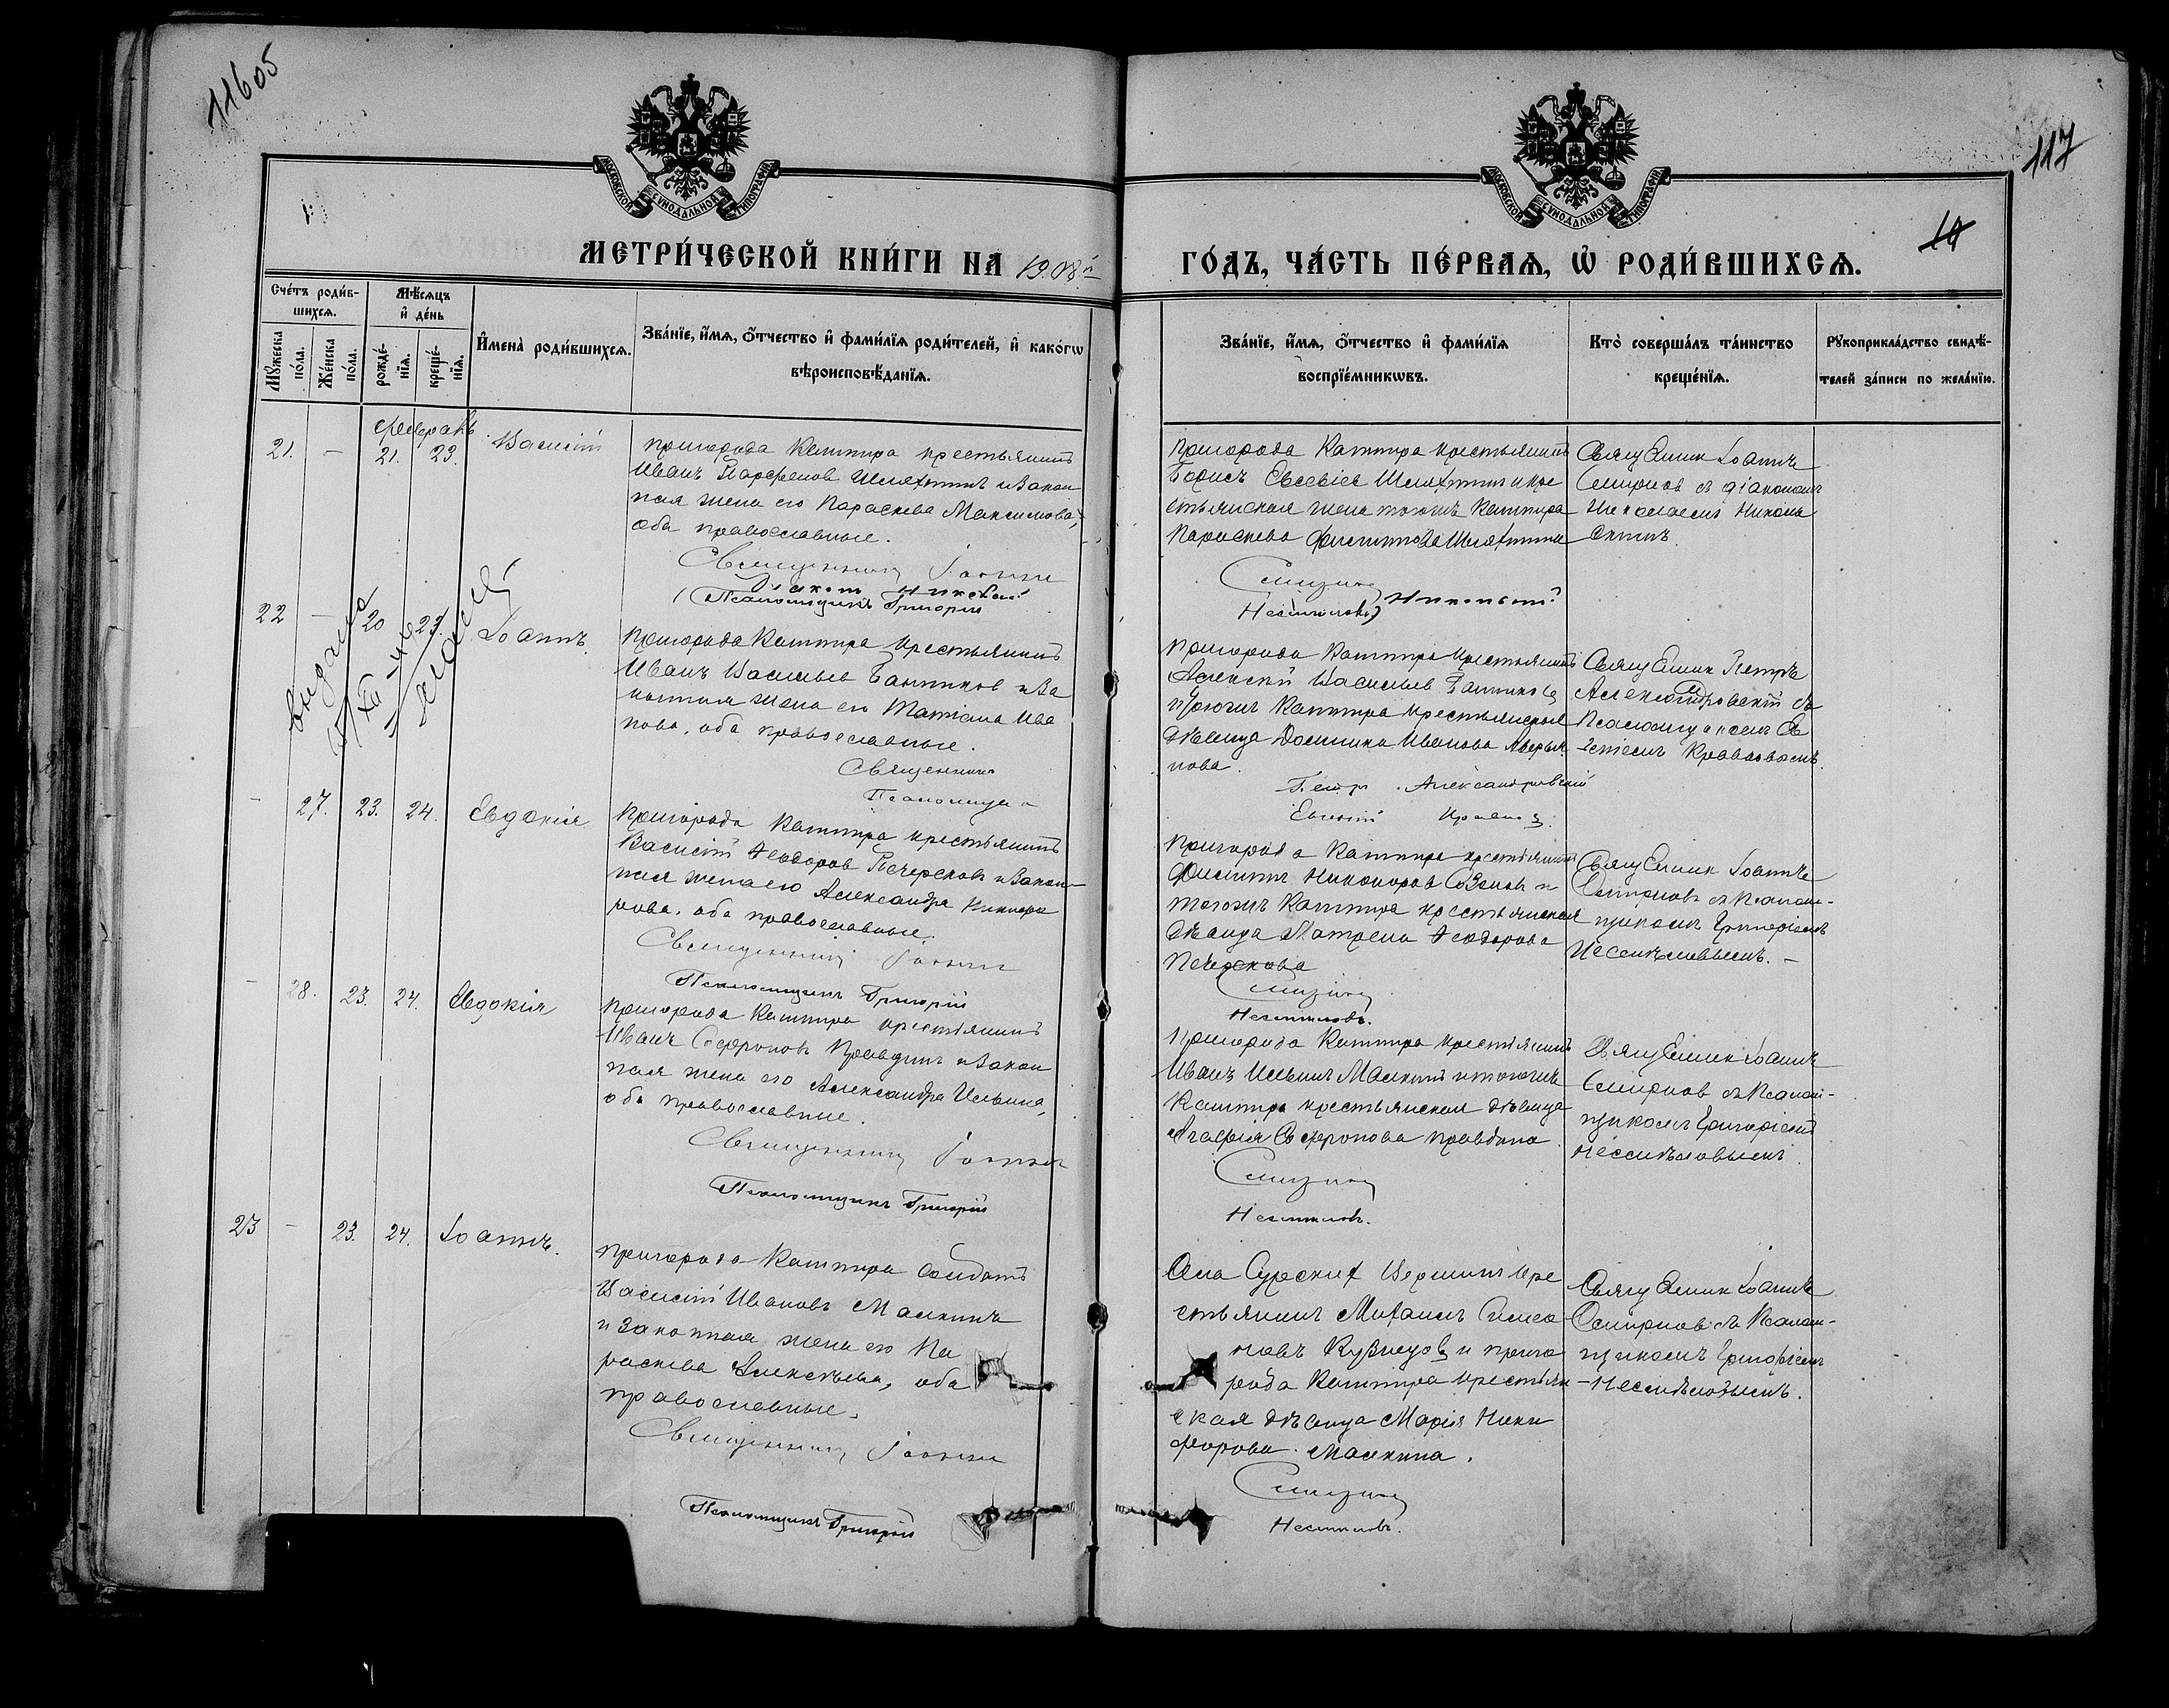 11605
117
МОСКОВСКОЙ СУНОДАЛЬНОЙ ТИПОГРАФІИ
МОСКОВСКОЙ СУНОДАЛЬНОЙ ТИПОГРАФІИ
МЕТРИ́ЧЕСКОЙ КНИ́ГИ НА 1908й
ГО́ДЪ, ЧА́СТЬ ПЕ́РВАѦ, Ѡ҆ РОДИ́ВШИХСѦ.
Сче́тъ роди́в-
шихсѧ.
Мѣ́сѧцъ
и҆ де́нь
Мꙋ́жеска по́ла.
Же́нска по́ла.
рожде́-
нїѧ.
креще́-
нїѧ.
И҆мена̀ роди́вшихсѧ.
Зва́нїе, и҆́мѧ, ѻ҆́тчество и҆ фами́лїѧ роди́телей, и҆ како́гѡ
вѣроисповѣ́данїѧ.
Зва́нїе, и҆́мѧ, ѻ҆́тчество и҆ фами́лїѧ
воспрїе́мникѡвъ.
Кто̀ соверша́лъ та́инство
креще́нїѧ.
Рꙋкоприкла́дство свидѣ́-
телей за́писи по жела́нїю.
февраль
21. — 21. 23. Василій
пригорода Каттира крестьянинъ
Иванъ Парфенов и закон
ная жена его Параскева Максимова,
оба православные.
Священникъ Іоаннъ
Діаконъ Николай
Псаломщикъ Григорій
пригорода Каттира крестьянинъ
Борисъ Евсевіев и кре
стьянская жена тогожъ Каттира
Параскева Филиппова
Смирновъ
Никольскій
Несмѣловъ
Священник Іоаннъ
Смирнов съ діаконом
Николаемъ Николь
скимъ
22 — 20 23. Іоаннъ
выдано
XII-46
пригорода Каттира крестьянинъ
Иванъ Васильев и за
конная жена его Татіана Ива
нова, оба православные.
Священникъ
Псаломщикъ
пригорода Каттира крестьянинъ
Алексій Васильев
и тогожъ Каттира крестьянская
дѣвица Домника Иванова Аверья
нова.
Петръ Александровскій
Евгеній
Священник Петръ
Александровскій съ
Псаломщиком Ев
геніемъ
— 27. 23. 24. Евдокія
пригорода Каттира крестьянинъ
Василій Ѳеодоров Печерсков и закон
ная жена его Александра Никифо
рова, оба православные.
Священникъ Іоаннъ
Псаломщикъ Григорій
пригорода Каттира крестьянинъ
Филиппъ Никоноров Созонов и
тогожъ Каттира крестьянская
дѣвица Матрена Ѳеодорова
Печерскова
Смирновъ
Несмѣловъ.
Священник Іоаннъ
Смирновъ съ Псалом-
щиком Григоріемъ
Несмѣловымъ. —
— 28. 23. 24. Евдокія
пригорода Каттира крестьянинъ
Иванъ Софронов Правдин и закон
ная жена его Александра Ильина,
оба православные.
Священникъ Іоаннъ
Псаломщикъ Григорій
пригорода Каттира крестьянинъ
Иванъ Ильин Малкин и тогожъ
Каттира крестьянская дѣвица
Агафія Софронова Правдина.
Смирновъ
Несмѣловъ.
Священник Іоаннъ
Смирнов съ Псалом-
щиком Григоріемъ
Несмѣловымъ
23 — 23. 24. Іоаннъ.
пригорода Каттира солдатъ
Василій Ивановъ Малкинъ
и законная жена его Па
раскева Алексѣева, оба
православные.
Священникъ Іоаннъ
Псаломщикъ Григорій
Села Сурских Вершинъ кре
стьянинъ Михаилъ Симео
новъ Кузнецов и приго
рода Каттира крестьян
ская дѣвица Марія Ники
форова Малкина.
Смирновъ
Несмѣловъ.
Священник Іоаннъ
Смирнов съ Псалом-
щиком Григоріемъ
Несмѣловымъ.